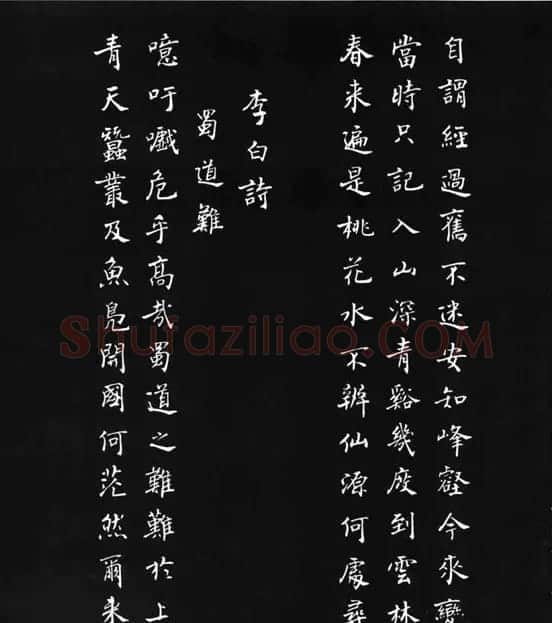 自謂經過舊不迷安知峰壑今來變
當時只記入山深青谿幾度到雲林
春来遍是桃花水不辨仙源何處尋
李白詩
蜀道難
噫吁嚱危乎高哉蜀道之難難於上
青天蠶叢及魚鳧開國何茫然爾来
Shufaziliao.COM